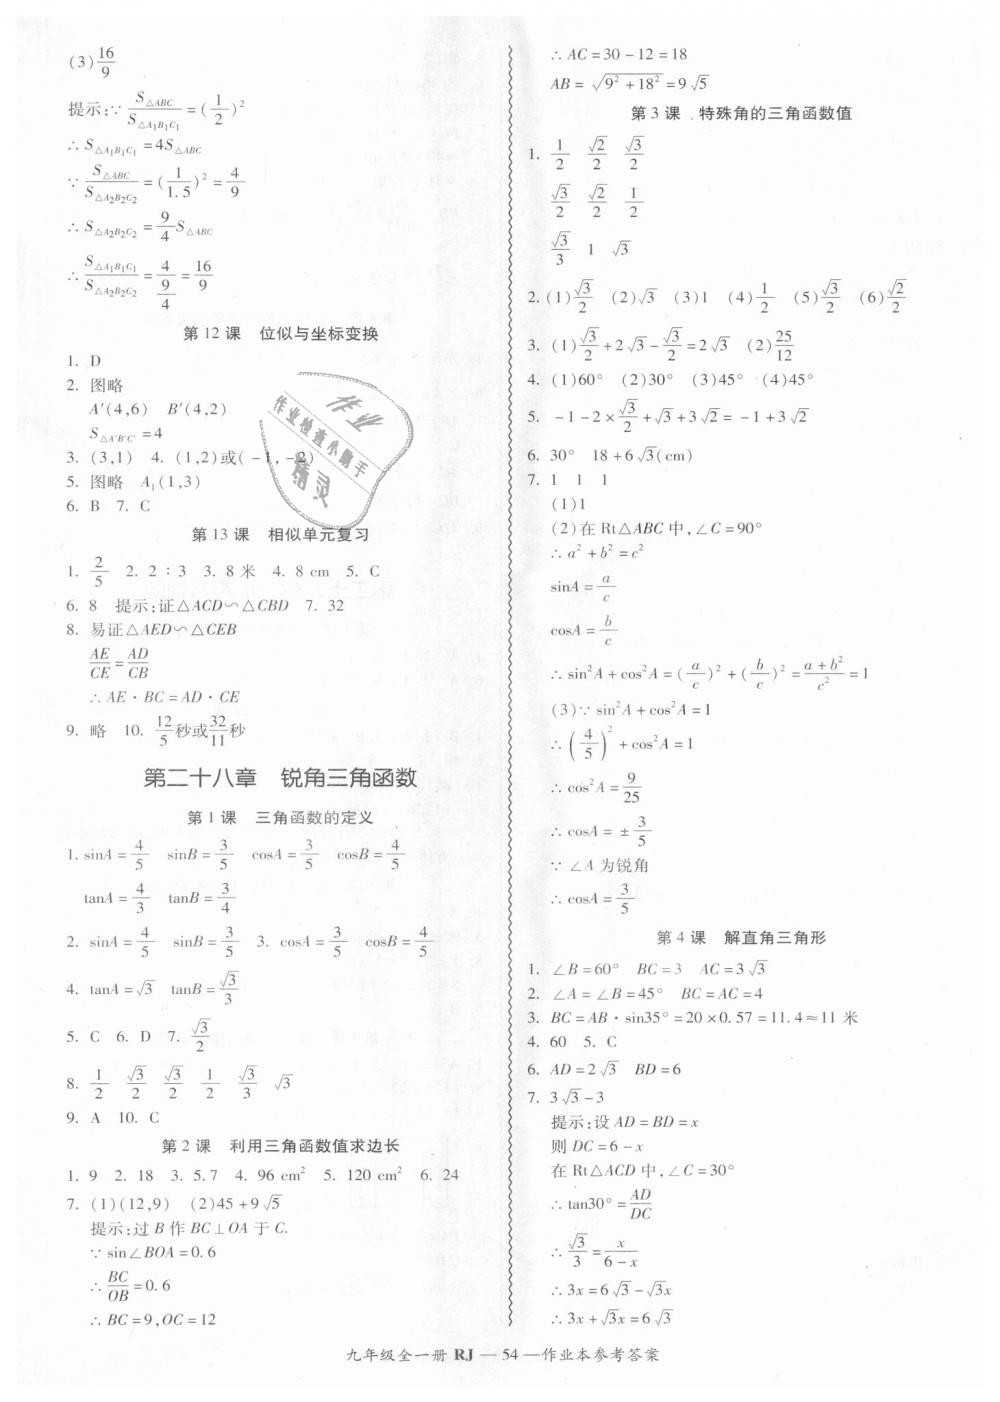 (3) 16/9
提示:∵ S△ABC/S△A₁B₁C₁ = (1/2)²
∴ S△A₁B₁C₁ = 4S△ABC
∵ S△ABC/S△A₂B₂C₂ = (1/1.5)² = 4/9
∴ S△A₂B₂C₂ = 9/4 S△ABC
∴ S△A₁B₁C₁/S△A₂B₂C₂ = 4/(9/4) = 16/9
第 12 课 位似与坐标变换
1. D
2. 图略
A′(4,6) B′(4,2)
S△A′B′C′ = 4
3. (3,1) 4. (1,2)或(-1,-2)
5. 图略 A₁(1,3)
6. B 7. C
第 13 课 相似单元复习
1. 2/5 2. 2∶3 3. 8 米 4. 8 cm 5. C
6. 8 提示:证△ACD∽△CBD 7. 32
8. 易证△AED∽△CEB
AE/CE = AD/CB
∴ AE·BC = AD·CE
9. 略 10. 12/5秒或32/11秒
第二十八章 锐角三角函数
第 1 课 三角函数的定义
1. sinA = 4/5 sinB = 3/5 cosA = 3/5 cosB = 4/5
tanA = 4/3 tanB = 3/4
2. sinA = 4/5 sinB = 3/5 3. cosA = 3/5 cosB = 4/5
4. tanA = √3 tanB = √3/3
5. C 6. D 7. √3/2
8. 1/2 √3/2 √3/2 1/2 √3/3 √3
9. A 10. C
第 2 课 利用三角函数值求边长
1. 9 2. 18 3. 5.7 4. 96 cm² 5. 120 cm² 6. 24
7. (1)(12,9) (2)45+9√5
提示:过 B 作 BC⊥OA 于 C.
∵ sin∠BOA = 0.6
∴ BC/OB = 0.6
∴ BC = 9,OC = 12
∴ AC = 30-12 = 18
AB = √(9²+18²) = 9√5
第 3 课 特殊角的三角函数值
1. 1/2 √2/2 √3/2
√3/2 √2/2 1/2
√3/3 1 √3
2. (1)√3/2 (2)√3 (3)1 (4)1/2 (5)√3/2 (6)√2/2
3. (1)√3/2+2√3-√3/2=2√3 (2)25/12
4. (1)60° (2)30° (3)45° (4)45°
5. -1-2×√3/2+√3+3√2=-1+3√2
6. 30° 18+6√3(cm)
7. 1 1 1
(1)1
(2)在 Rt△ABC 中,∠C=90°
∴ a²+b²=c²
sinA = a/c
cosA = b/c
∴ sin²A+cos²A=(a/c)²+(b/c)²=(a+b²)/c²=1
(3)∵ sin²A+cos²A=1
∴ (4/5)²+cos²A=1
∴ cos²A = 9/25
∴ cosA = ±3/5
∵ ∠A 为锐角
∴ cosA = 3/5
第 4 课 解直角三角形
1. ∠B=60° BC=3 AC=3√3
2. ∠A=∠B=45° BC=AC=4
3. BC=AB·sin35°=20×0.57=11.4≈11 米
4. 60 5. C
6. AD=2√3 BD=6
7. 3√3-3
提示:设 AD=BD=x
则 DC=6-x
在 Rt△ACD 中,∠C=30°
∴ tan30° = AD/DC
∴ √3/3 = x/(6-x)
∴ 3x=6√3-√3x
∴ 3x+√3x=6√3
九年级全一册 RJ — 54 —作业本参考答案
作业
作业检查小助手
精灵